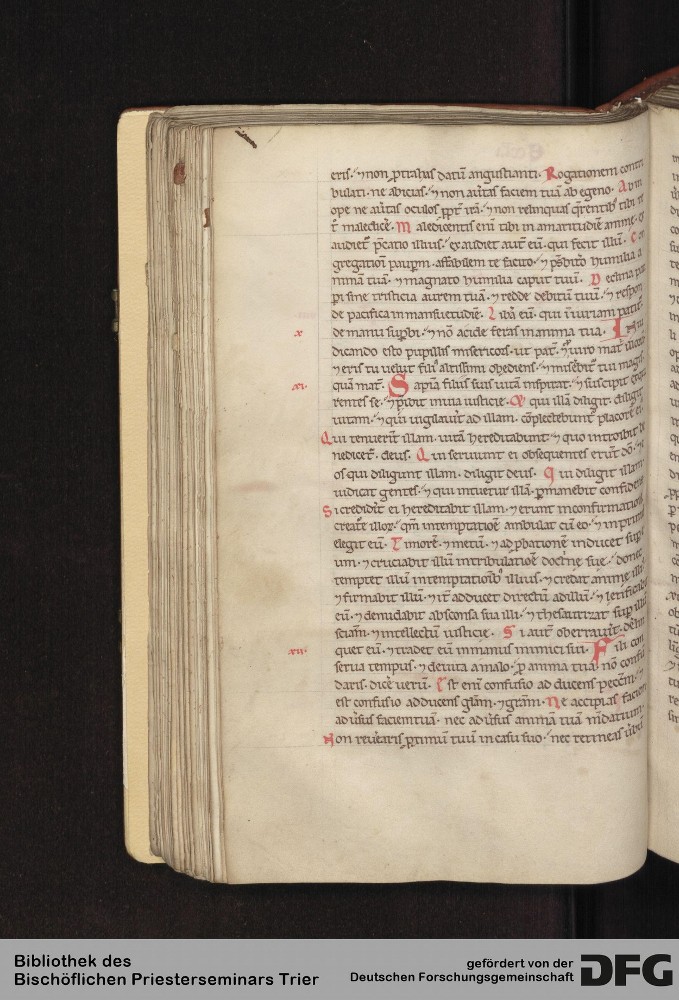 eris. ⁊ non ꝓtrahas datū angustianti. Rogationem contri
bulati ne abicias. ⁊ non aũtas faciem tuā ab egeno. Ab in
ope ne aũtas oculos ꝓpt̃ irā. ⁊ non relinquas q̃rentib; tibi
t̃ maledice᷑. Maledicentis enī tibi in amaritudīe anime. ex
audiet᷑ p̃catio illius. exaudiet aut̄ eū. qui fecit illū. Con
gregationi paupꝝ. affabilem te facito. ⁊ p̃sbit̃o humilia a
nimā tuā. ⁊ magnato humilia caput tuū. Declina pau
ꝑi sine tristicia aurem tuā. ⁊ redde debitū tuū. ⁊ respon
de pacifica in mansuetudīe. Libā eū. qui iniuriam patit᷑
x de manu supbi. ⁊ nō acide feras in anima tua. In iu
dicando esto pupillis misericors. ut pat̃. ⁊ ꝓ uiro mat̃ illoꝝ
⁊ eris tu uelut fili᷒ altissimi obediens. ⁊ miserebit᷑ tui magis
xi. quā mat̃. Sapiā filiis suis uitā inspirat. ⁊ suscipit exqui
rentes se. ⁊ p̃ibit in uia iusticie. Et qui illā diligit. diligit
uitam. ⁊ qui uigilauit̃ ad illam. cōplectebunt᷑ placorē ei᷒.
Qui tenuerit̃ illam. uitā hereditabunt. ⁊ quo introibit be
nedicet᷑. deus. Qui seruiunt ei obsequentes erūt dō. ⁊ e
os qui diligunt illam. diligit deus. Qui diligit illam
iudicat gentes. ⁊ qui intuetur illā. ꝑmanebit confidens
Si credidit̃ ei hereditabit illam. ⁊ erunt in confirmatione
creatē illoꝝ. qm̄ in temptatioē ambulat cū eo. ⁊ in primis
elegit eū. Timorē. ⁊ metū. ⁊ ad ꝓbationē inducet sup il
um. ⁊ cruciabit illū in tribulatioē doct̃ne sue. donec
temptet illū in temptationib᷒ illius. ⁊ credat anime illi᷒
⁊ firmabit illū. ⁊ it̃ adducet directū ad illū. ⁊ letificabit
eū. ⁊ denudabit absconsa sua illi. ⁊ thesaurizat sup illū
sciam̄. ⁊ intellectū iusticie. Si aut̄ oberrauit̃. delin
xii. quet eū. ⁊ tradet eū in manus inimici sui. Fili con
serua tempus. ⁊ deuita a malo. ꝑ anima tua. nō confū
daris. dicē uerū. Est enī confusio ad ducens pecc̄m. ⁊
est confusio adducens gl̄am. ⁊ gr̄am. Ne accipias faciem
adũsus faciem tuā. nec adũsus animā tuā mdatium.
Non reueãris ꝓximū tuū in casu suo. nec retineas ũbū
Bibliothek des
Bischöflichen Priesterseminars Trier
gefördert von der
Deutschen Forschungsgemeinschaft
DFG